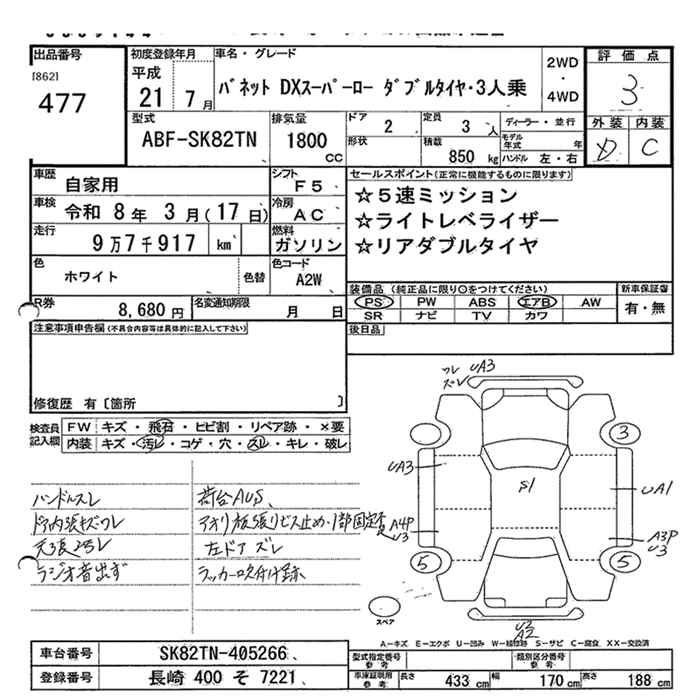 出品番号
[862]
477
初度登録年月
平成
21 7 月
車名・グレード
バネット DXスーパーロー ダブルタイヤ・3人乗
2WD
・
4WD
評価点
3
外装 内装
D C
型式
ABF-SK82TN
排気量
1800
CC
ドア
2
形状
定員
3 人
積載
850 kg
ディーラー・並行
モデル年式 年
ハンドル 左・右
車歴
自家用
シフト
F5
車検
令和 8年 3月(17日)
冷房
AC
走行
9万7千917 km
燃料
ガソリン
色
ホワイト
色替
色コード
A2W
R券
8,680 円
名変通知期限
月 日
セールスポイント(正常に機能するものに限ります)
☆5速ミッション
☆ライトレベライザー
☆リアダブルタイヤ
装備品 (純正品に限り○をつけてください)
PS PW ABS エアB AW
SR ナビ TV カワ
新車保証書
有・無
後日品
注意事項申告欄(不具合内容等は具体的に記入して下さい)
修復歴 有〔箇所 〕
検査員記入欄
FW キズ・飛石・ヒビ割・リペア跡・×要
内装 キズ・汚レ・コゲ・穴・スレ・キレ・破レ
ハンドルスレ
ドア内張キズワレ
天張ヨゴレ
ラジオ音出ず
荷台AUS
アオリ板張りビス止め・1部固定
左ドアズレ
ラッカー吹付け跡
ワレ
ズレ
UA3
3
UA3
S1
UA1
A4P
U3
A3P
U3
5
5
スペア
U2
A2
A-キズ E-エクボ U-凹み W-補修跡 S-サビ C-腐食 XX-交換済
車台番号
SK82TN-405266
登録番号
長崎 400 そ 7221
型式指定番号
参考
類別区分番号
参考
車庫証明用
参考
長さ 433 cm 幅 170 cm 高さ 188 cm